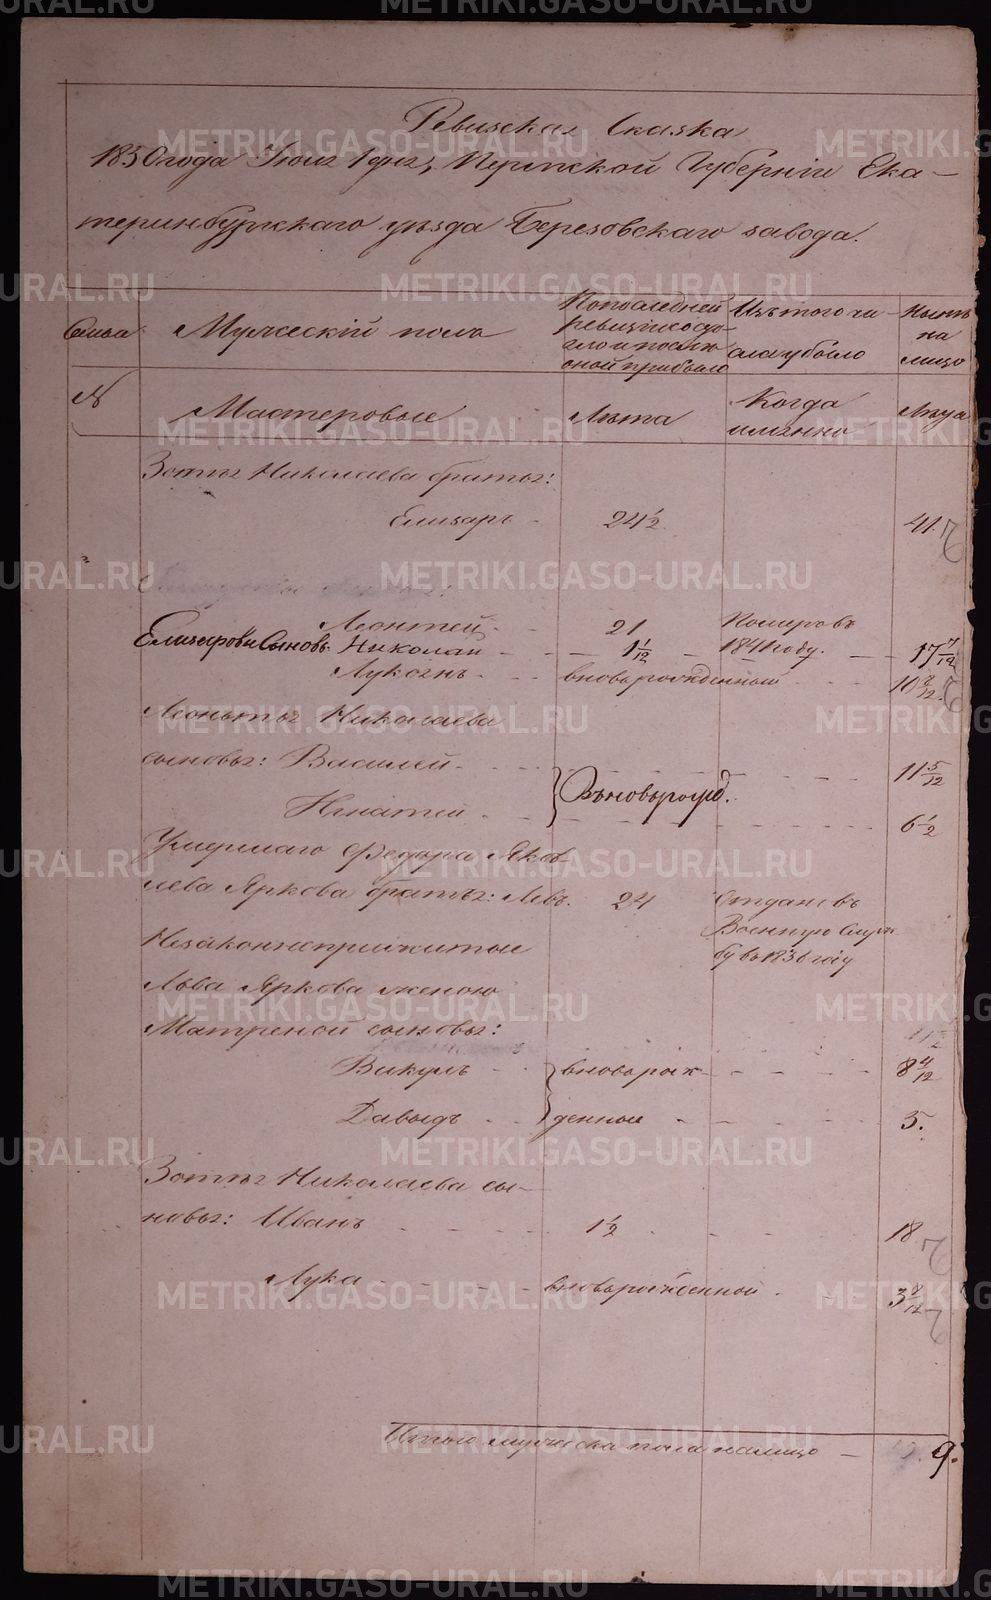 Ревизская Сказка
1850 года Июня 1 дня, Пермской Губернiи Ека-
теринбургскаго уѣзда Березовскаго завода.
Семьи
Мужескiй полъ
По последней ревизiи состояло и после оной прибыло
Изъ того числа убыло
Нынѣ на лицо
№
Мастеровые
Лѣта
Когда именно
Лѣта
Зотъя Николаева братья:
Елизаръ - 24½ 41.
Леонтей - - 21 Померъ въ 1841 году.
Елизаровы Сыновья Николай - - - 1 1/12 - - 17 7/12
Лукоянъ - - - вновь рожденный - - - 10
Леонтья Николаева
сыновья: Василей - - - 11 5/12
Игнатей - - - Вновь рожд. - - - 6½
Умершаго Федора Яков-
лева Яркова братья: Левъ. 24 Отданъ въ Военную Служ-
бу въ 1836 году
Незаконноприжитые
Льва Яркова женою
Матреной сыновья:
Викулъ - - вновь рож- - - - 8 4/12
Давыдъ - - денные - - - 5.
Зотья Николаева сы-
новья: Иванъ - - - 1½ - - 18
Лука - - - вновь рожденной - - 3
Итого мужеска пола на лицо - 9.
METRIKI.GASO-URAL.RU